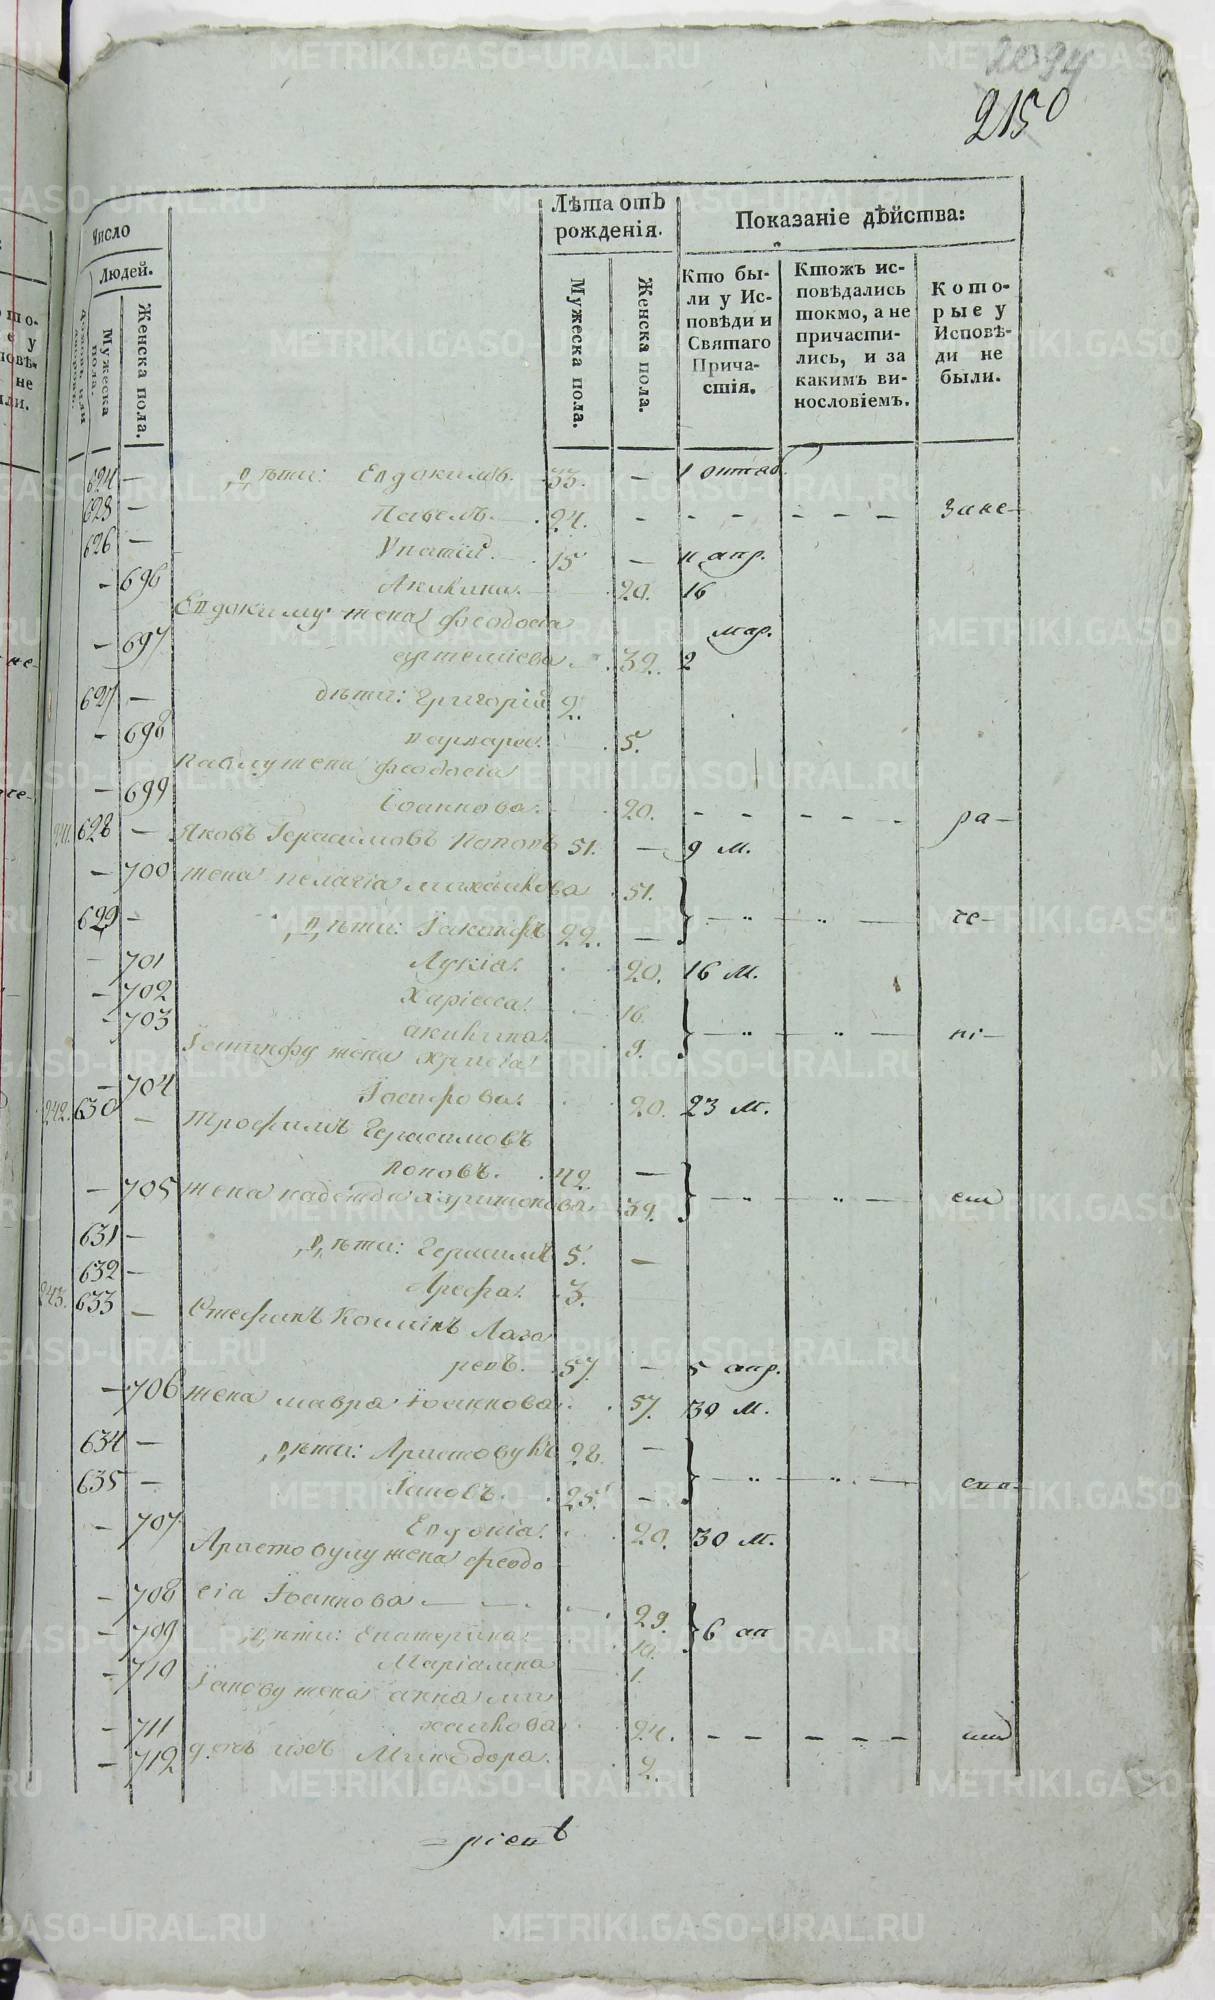 2094
2150
Число
Людей.
Мужеска пола.
Женска пола.
Лѣта отъ рожденія.
Мужеска пола.
Женска пола.
Показаніе дѣйства:
Кто были у Исповѣди и Святаго Причастія.
Ктожъ исповѣдались токмо, а не причастились, и за какимъ винословіемъ.
Которые у Исповѣди не были.
624 — дѣти: Евдокимъ. 33. — 1 октяб.
625 — Павелъ. 24. - - - - - - зане-
626 — Ипатій. 15 — 11 апр.
- 696 Акилина. 20. 16
Евдокиму жена феодосіа
- 697 39. 2 мар.
627 — дѣти: Григорій 9.
- 698 варвара. 5.
Павлу жена феодосіа
- 699 Іоаннова. 20. - - - - - - ра-
241. 628 — Яковъ Герасимовъ Поповъ 51. — 9 м.
- 700 жена пелагіа михаилова 51.
629 — дѣти: Іакинфъ 22. — } — " — " — че-
- 701 Лукіа. 20. 16 м.
- 702 Хариесса. 16.
- 703 акилина. 9. } — " — " — ні-
Іакинфу жена
- 704 Іосифова. 20. 23 м.
242. 630 — Трофимъ Герасимовъ
Поповъ. 42. —
- 705 жена надежда харитонова 39. } — " — " — емъ
631 — дѣти: Герасимъ 5. —
632 — Арефа. 3.
243. 633 — Стефанъ Козминъ Лаза
ревъ. 57. — 5 апр.
- 706 жена мавра Іоаннова. 57. 30 м.
634 — дѣти: Аристовулъ 28. —
635 — Іаковъ. 25. — } — " — " — ста-
- 707 Евдокіа. 20. 30 м.
Аристовулу жена феодо
- 708 сіа Іоаннова — 29.
- 709 дѣти: Екатерина. 10. } 6 ап
- 710 Маріамна 1.
Іакову жена анна ми
- 711 хаилова 24. - - - - - -
- 712 дочь ихъ Минодора. 2.